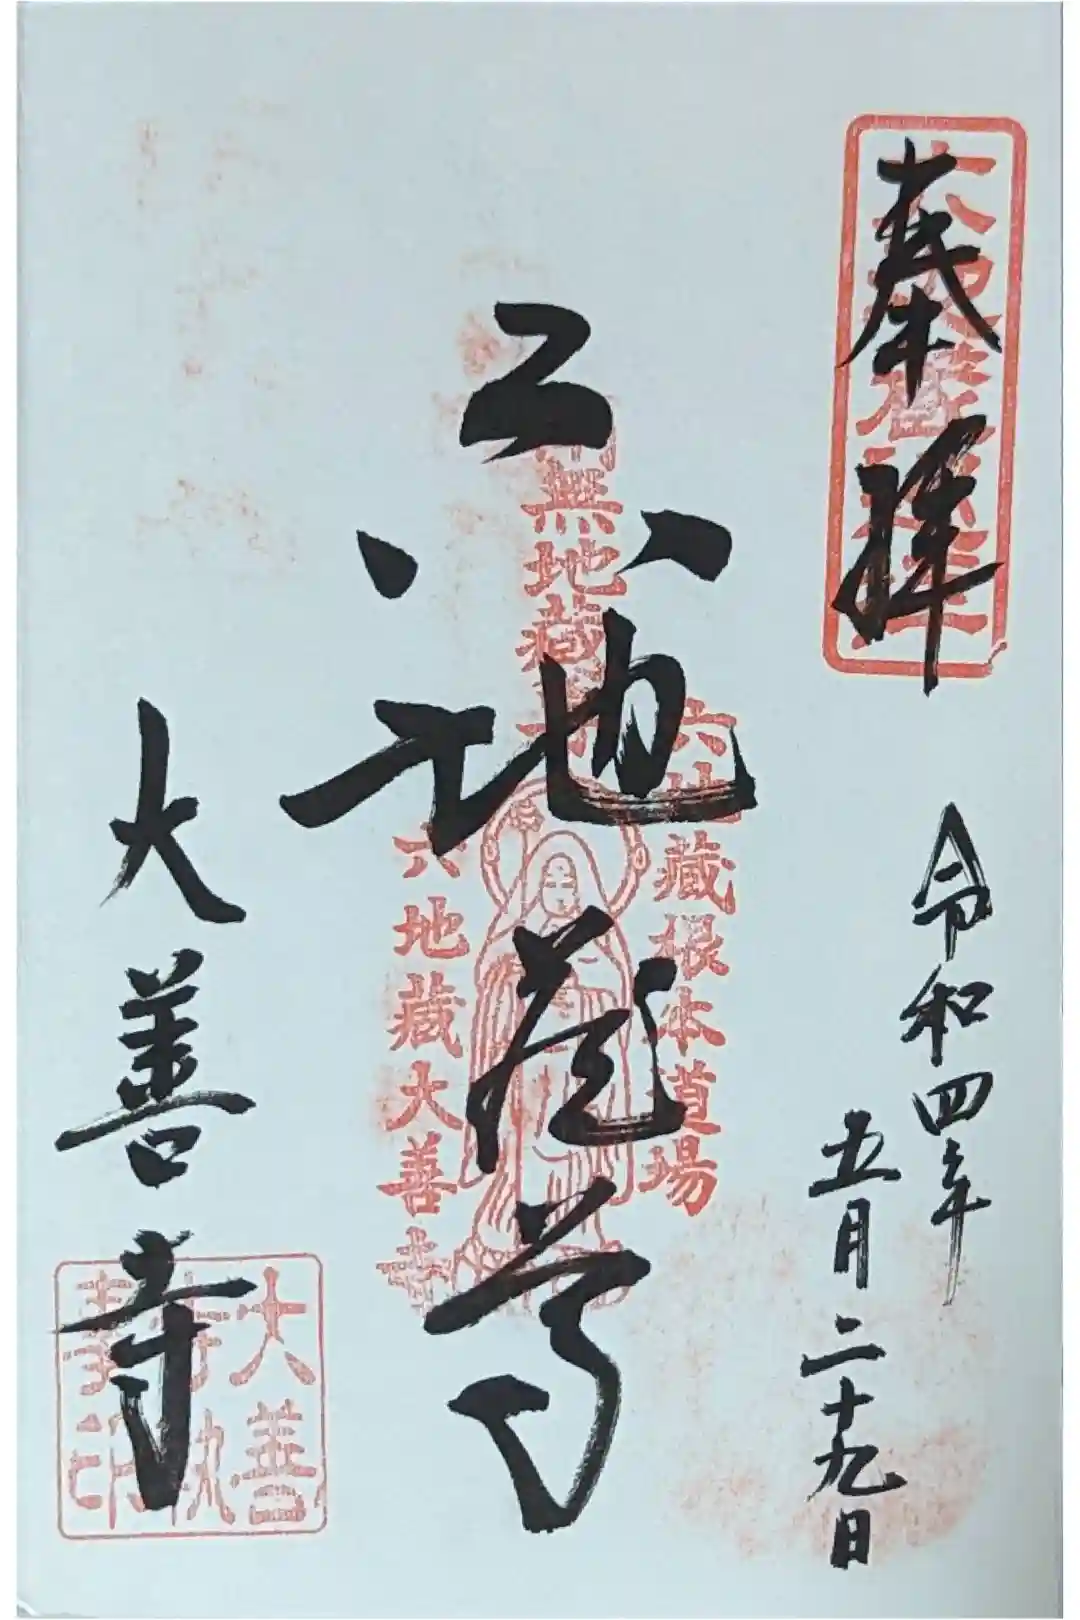 奉拝
令和四年
五月二十九日
六地蔵尊
南無地蔵尊
六地藏根本道場
六地藏大善寺
大善寺
大善
寺執
事印